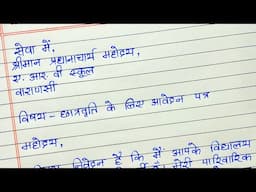 सेवा में,
श्रीमान प्रधानाचार्य महोदय,
ए. आर. वी स्कूल
वाराणसी
विषय - छात्रवृत्ति के लिए आवेदन पत्र
महोदय,
निवेदन है कि मैं आपके विद्यालय
मेरी पारिवारिक